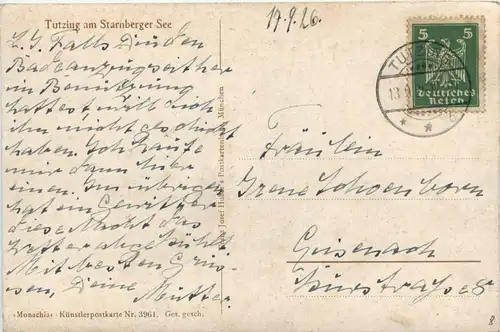 Tutzing am Starnberger See
17.9.26.
L. I. Falls Du den
Badeanzug seither
in Benützung
hattest, will ich
ihn nicht geschickt
haben. Ich kaufe
mir dann hier
einen. Im übrigen
hat ein Gewitter
diese Nacht das
Wetter abgekühlt.
Mit besten Grüs-
sen, Deine Mutter.
«Monachia» Künstlerpostkarte Nr. 3961. Ges. gesch.
Josef Huber's Postkartenverlag, München
5 5
Deutsches
Reich
TUTZ
Fräulein
Irene Schoenborn
Eisenach
8